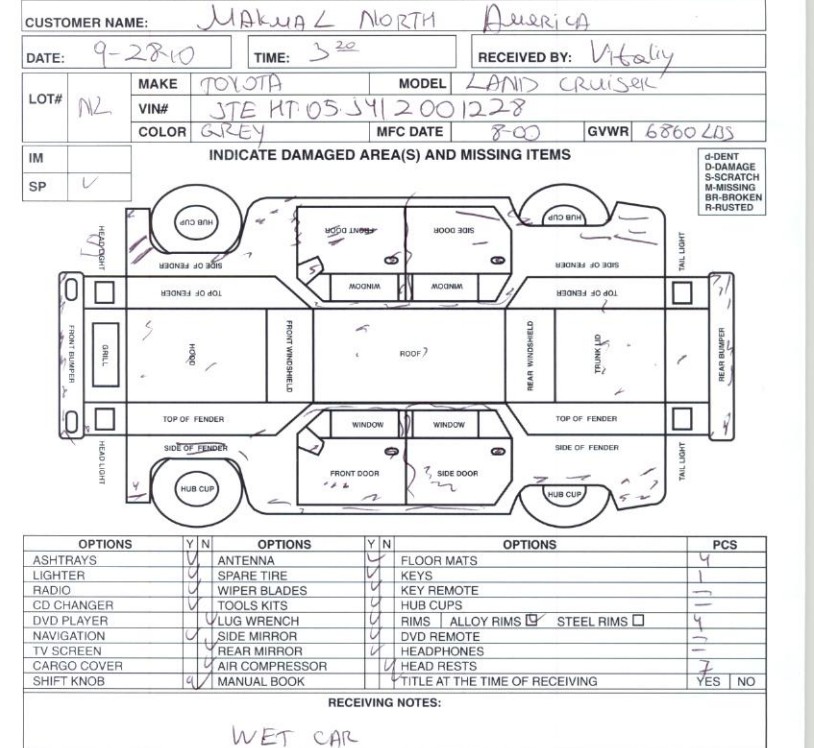 CUSTOMER NAME: MAKMAL NORTH AMERICA
DATE: 9-28-10 TIME: 3 20 RECEIVED BY: Vitaliy
LOT# NL MAKE TOYOTA MODEL LAND CRUISER
VIN# JTE HT 05 J412001228
COLOR GREY MFC DATE 8-00 GVWR 6860 LBS
IM
SP
INDICATE DAMAGED AREA(S) AND MISSING ITEMS
d-DENT
D-DAMAGE
S-SCRATCH
M-MISSING
BR-BROKEN
R-RUSTED
HUB CUP FRONT DOOR SIDE DOOR HUB CUP
HEAD LIGHT SIDE OF FENDER SIDE OF FENDER TAIL LIGHT
TOP OF FENDER WINDOW WINDOW TOP OF FENDER
FRONT BUMPER GRILL HOOD FRONT WINDSHIELD ROOF REAR WINDSHIELD TRUNK LID REAR BUMPER
TOP OF FENDER WINDOW WINDOW TOP OF FENDER
HEAD LIGHT SIDE OF FENDER SIDE OF FENDER TAIL LIGHT
HUB CUP FRONT DOOR SIDE DOOR HUB CUP
OPTIONS Y N OPTIONS Y N OPTIONS PCS
ASHTRAYS ANTENNA FLOOR MATS 4
LIGHTER SPARE TIRE KEYS 1
RADIO WIPER BLADES KEY REMOTE –
CD CHANGER TOOLS KITS HUB CUPS –
DVD PLAYER LUG WRENCH RIMS ALLOY RIMS STEEL RIMS 4
NAVIGATION SIDE MIRROR DVD REMOTE –
TV SCREEN REAR MIRROR HEADPHONES –
CARGO COVER AIR COMPRESSOR HEAD RESTS 7
SHIFT KNOB MANUAL BOOK TITLE AT THE TIME OF RECEIVING YES NO
RECEIVING NOTES:
WET CAR